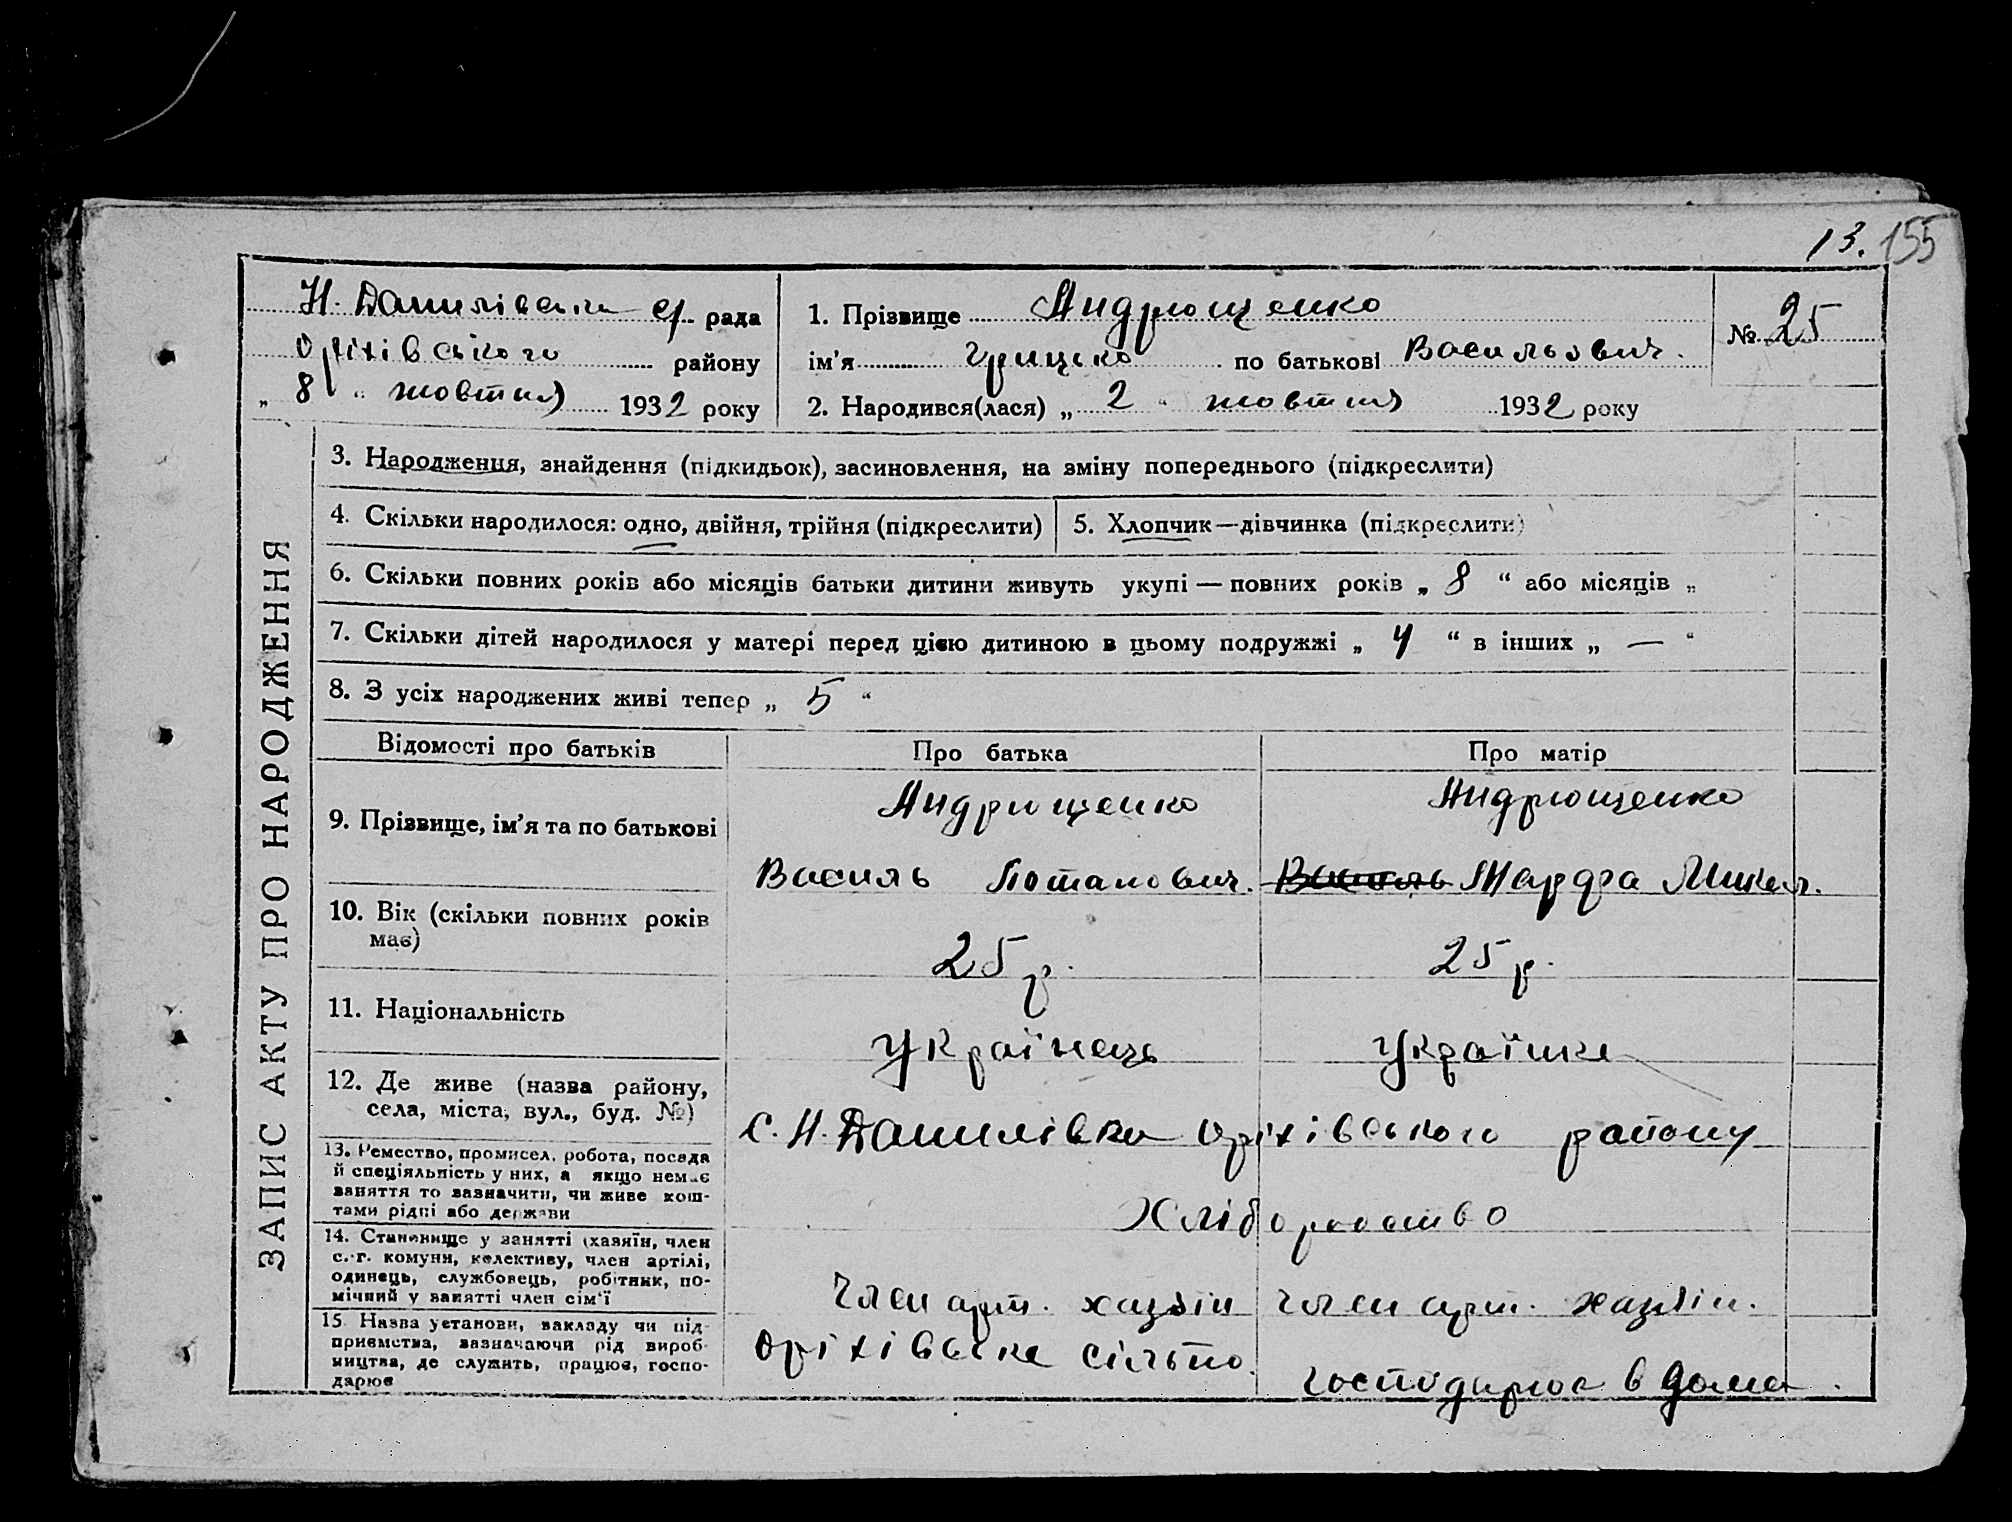 13. 155
Н. Данилівська с/ рада
Оріхівського району
„ 8 “ жовтня 1932 року
1. Прізвище Андрющенко
ім’я Грицько по батькові Васильович.
2. Народився(лася) „ 2 “ жовтня 1932 року
№ 25
ЗАПИС АКТУ ПРО НАРОДЖЕННЯ
3. Народження, знайдення (підкидьок), засиновлення, на зміну попереднього (підкреслити)
4. Скільки народилося: одно, двійня, трійня (підкреслити)
5. Хлопчик—дівчинка (підкреслити)
6. Скільки повних років або місяців батьки дитини живуть укупі — повних років „ 8 “ або місяців „
7. Скільки дітей народилося у матері перед цією дитиною в цьому подружжі „ 4 “ в інших „ — “
8. З усіх народжених живі тепер „ 5 “
Відомості про батьків
Про батька
Про матір
9. Прізвище, ім’я та по батькові
Андрющенко
Василь Потапович.
Андрющенко
Василь Марфа Микол.
10. Вік (скільки повних років
має)
25 р.
25 р.
11. Національність
Українець
Українка
12. Де живе (назва району,
села, міста, вул., буд. №)
С. Н. Данилівка Оріхівського району
13. Ремество, промисел, робота, посада
й спеціяльність у них, а якщо немає
заняття то зазначити, чи живе кош-
тами рідні або держави
Хліборобство
14. Становище у занятті (хазяїн, член
с.-г. комуни, колективу, член артілі,
одинець, службовець, робітник, по-
мічний у занятті член сім’ї
Член арт. хазяїн
Член арт. хазяїн.
15. Назва установи, закладу чи під-
приємства, зазначаючи рід вироб-
ництва, де служить, працює, госпо-
дарює
Оріхівське сільпо.
господарює в дома.